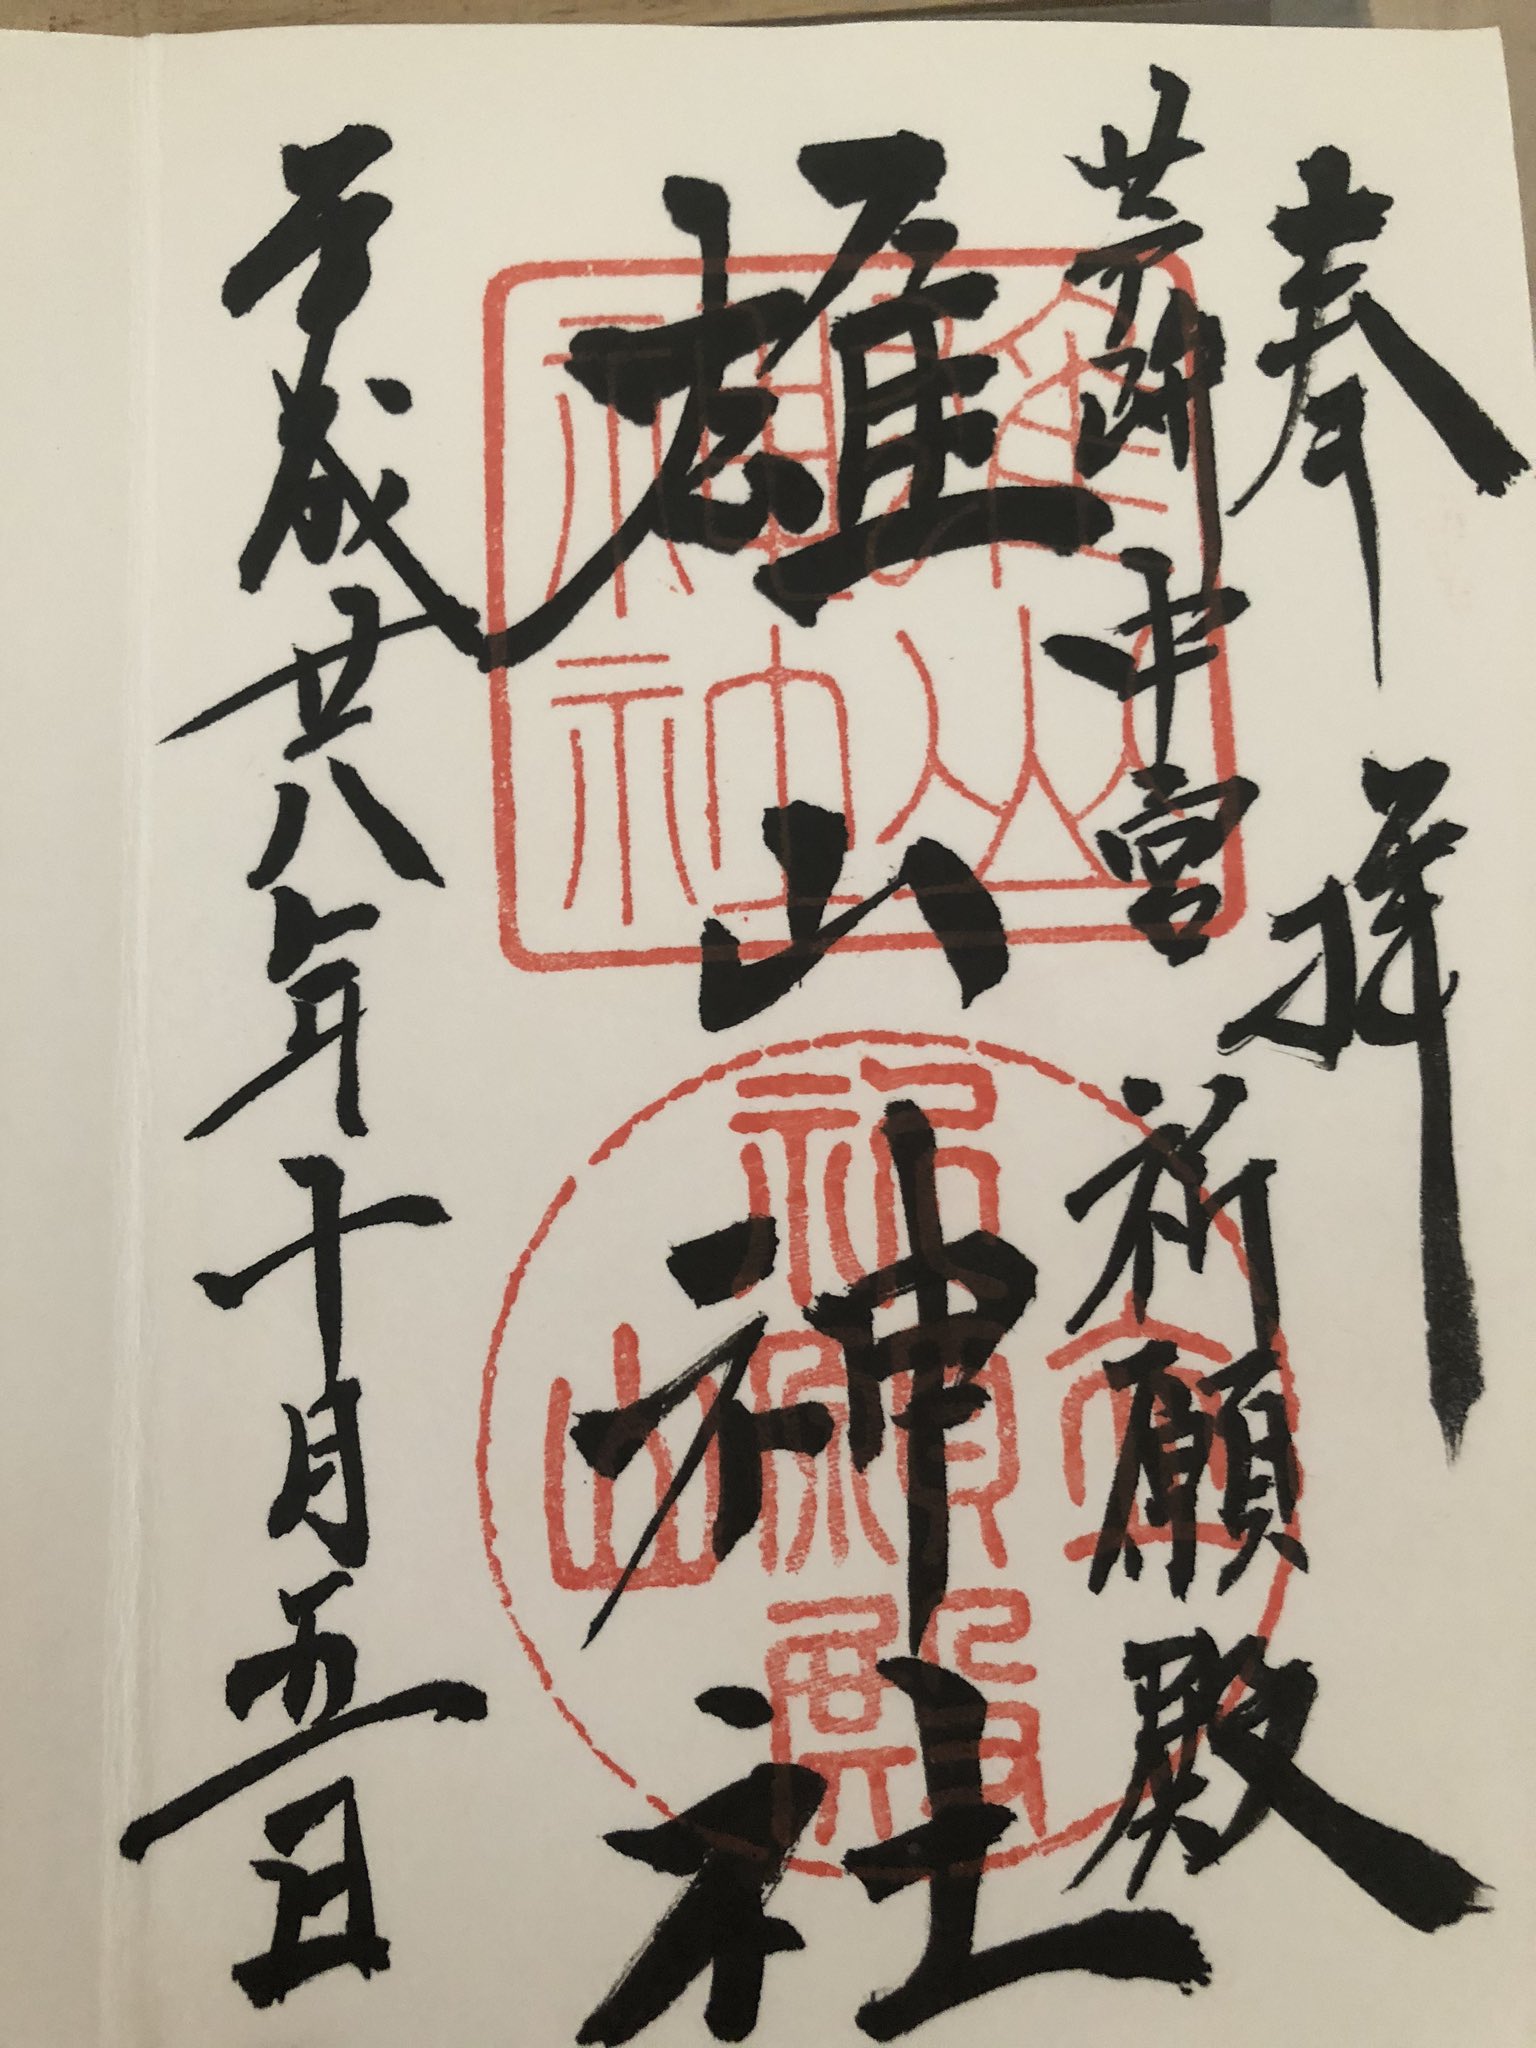 奉拝
芦峅中宮祈願殿
雄山神社
平成廿八年十月五日
雄山
神社
立山
祈願殿